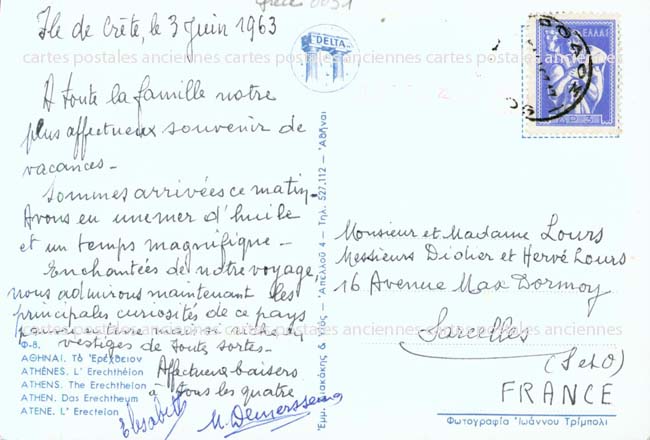 Grèce 0031
Ile de Crète, le 3 Juin 1963
DELTA
ΕΛΛΑΣ
cartes postales anciennes cartes postales anciennes cartes postales anciennes
A toute la famille notre
plus affectueux souvenir de
vacances -
Sommes arrivées ce matin -
Avons eu une mer d'huile
et un temps magnifique -
Enchantées de notre voyage,
nous admirons maintenant les
principales curiosités de ce pays
vestiges de toutes sortes -
Affectueux baisers
à tous les quatre
Elisabeth
Φ-8.
ΑΘΗΝΑΙ. Τὸ Ἐρέχθειον
ATHÈNES. L' Erechthéion
ATHENS. The Erechtheion
ATHEN. Das Erechtheum
ATENE. L' Erecteion
Ἀπελλοῦ 4 — Τηλ. 527.112 — Ἀθῆναι
Monsieur et Madame Lours
Messieurs Didier et Hervé Lours
16 Avenue Max Dormoy
cartes postales anciennes cartes postales anciennes cartes postales anciennes
Sarcelles
(S et O)
FRANCE
Φωτογραφία Ἰωάννου Τρίμπολι